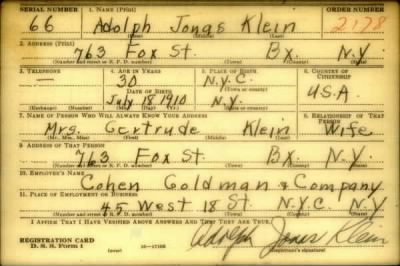 SERIAL NUMBER 1. NAME (Print) ORDER NUMBER
66 Adolph Jonas Klein 2178
(First) (Middle) (Last)
2. ADDRESS (Print)
763 Fox St. Bx. N.Y.
(Number and street or R. F. D. number) (Town) (County) (State)
3. TELEPHONE 4. AGE IN YEARS 5. PLACE OF BIRTH 6. COUNTRY OF CITIZENSHIP
30 N.Y.C.
DATE OF BIRTH (Town or county) U.S.A
July 18 1910 N.Y.
(Exchange) (Number) (Mo.) (Day) (Yr.) (State or country)
7. NAME OF PERSON WHO WILL ALWAYS KNOW YOUR ADDRESS 8. RELATIONSHIP OF THAT PERSON
Mrs. Gertrude Klein Wife
(Mr., Mrs., Miss) (First) (Middle) (Last)
9. ADDRESS OF THAT PERSON
763 Fox St. Bx. N.Y.
(Number and street or R. F. D. number) (Town) (County) (State)
10. EMPLOYER'S NAME
Cohen Goldman & Company
11. PLACE OF EMPLOYMENT OR BUSINESS
45 West 18 St. N.Y.C. N.Y
(Number and street or R. F. D. number) (Town) (County) (State)
I AFFIRM THAT I HAVE VERIFIED ABOVE ANSWERS AND THAT THEY ARE TRUE.
REGISTRATION CARD Adolph Jonas Klein
D. S. S. Form 1 (over) 16—17105 (Registrant's signature)